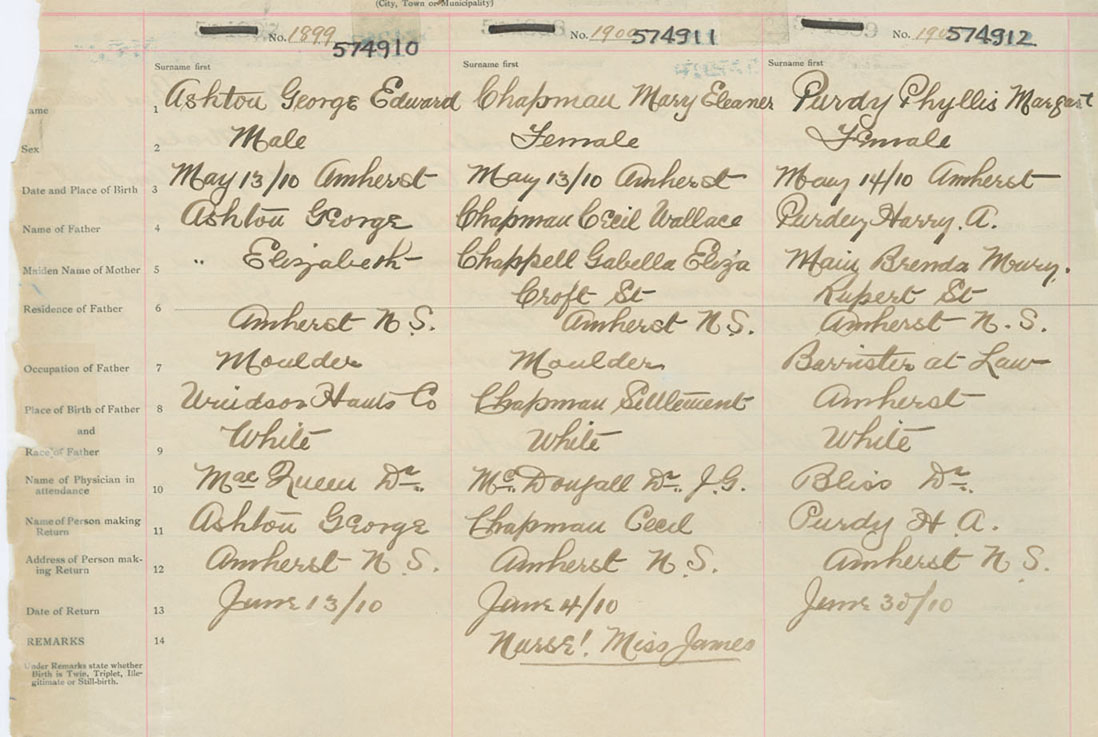 (City, Town or Municipality)
No. 1899 574910 No. 190 574911 No. 190 574912
Surname first Surname first Surname first
ame 1 Ashton George Edward Chapman Mary Eleaner Purdy Phyllis Margart
Sex 2 Male Female Female
Date and Place of Birth 3 May 13/10 Amherst May 13/10 Amherst May 14/10 Amherst
Name of Father 4 Ashton George Chapman Cecil Wallace Purdey Harry. A.
Maiden Name of Mother 5 " Elizabeth Chappell Gabella Eliza Main Brenda Mary.
Croft St Rupert St
Residence of Father 6 Amherst N S. Amherst N S. Amherst N. S.
Occupation of Father 7 Moulder Moulder Barrister at Law
Place of Birth of Father 8 Windson Hants Co Chapman Settlement Amherst
and
Race of Father 9 White White White
Name of Physician in attendance 10 Mac Queen Dr. Mc. Dougall Dr. J.G. Bliss Dr.
Name of Person making Return 11 Ashton George Chapman Cecil Purdy H A.
Address of Person mak-ing Return 12 Amherst N S. Amherst N S. Amherst N S.
Date of Return 13 June 13/10 June 4/10 June 30/10
REMARKS 14 Nurse! Miss James
Under Remarks state whether
Birth is Twin, Triplet, Ille-
gitimate or Still-birth.